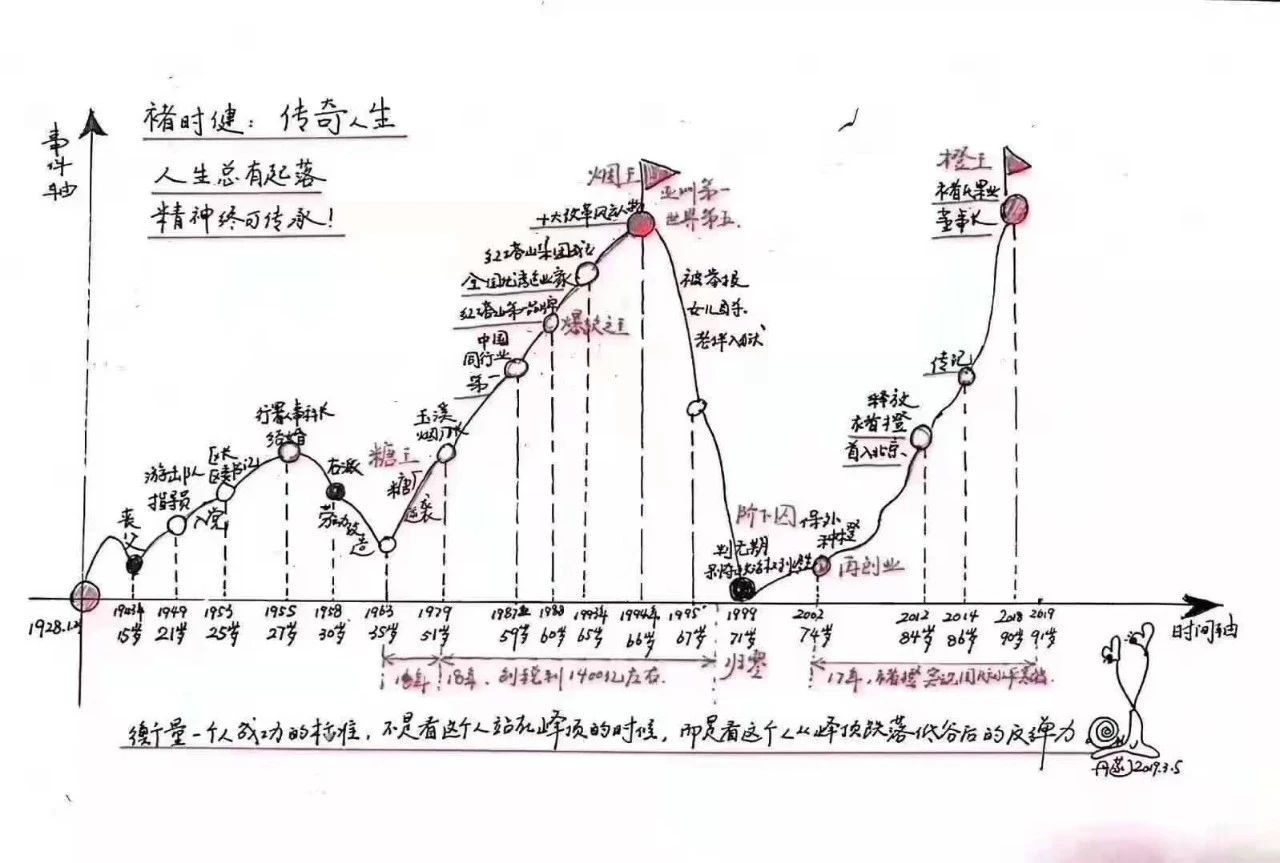 褚时健：传奇人生
人生总有起落
精神终可传承！
事件轴
烟王
亚洲第一
世界第五
十大改革风云人物
红塔山集团成
全国优秀企业家
红塔山第一品牌
爆款之王
中国
同行业
第一
玉溪
烟厂长
糖王
糖厂
逆袭
行署人事科长
结婚
区长
区委书记
游击队
指导员
入党
丧父
右派
劳动改造
被举报
女儿自杀
老伴入狱
阶下囚
判无期
剥夺政治权利终身
保外
种橙
再创业
释放
褚橙
首入北京
传记
橙王
褚氏果业
董事长
1928.1.2
1943年
15岁
1949
21岁
1953
25岁
1955
27岁
1958
30岁
1963
35岁
1979
51岁
1987
59岁
1988
60岁
1993年
65岁
1994年
66岁
1995
67岁
1999
71岁
2002
74岁
2012
84岁
2014
86岁
2018
90岁
2019
91岁
时间轴
18年，创税利1400亿左右
归零
17年，褚橙
衡量一个人成功的标准，不是看这个人站在峰顶的时候，而是看这个人从峰顶跌落低谷后的反弹力
2019.3.5